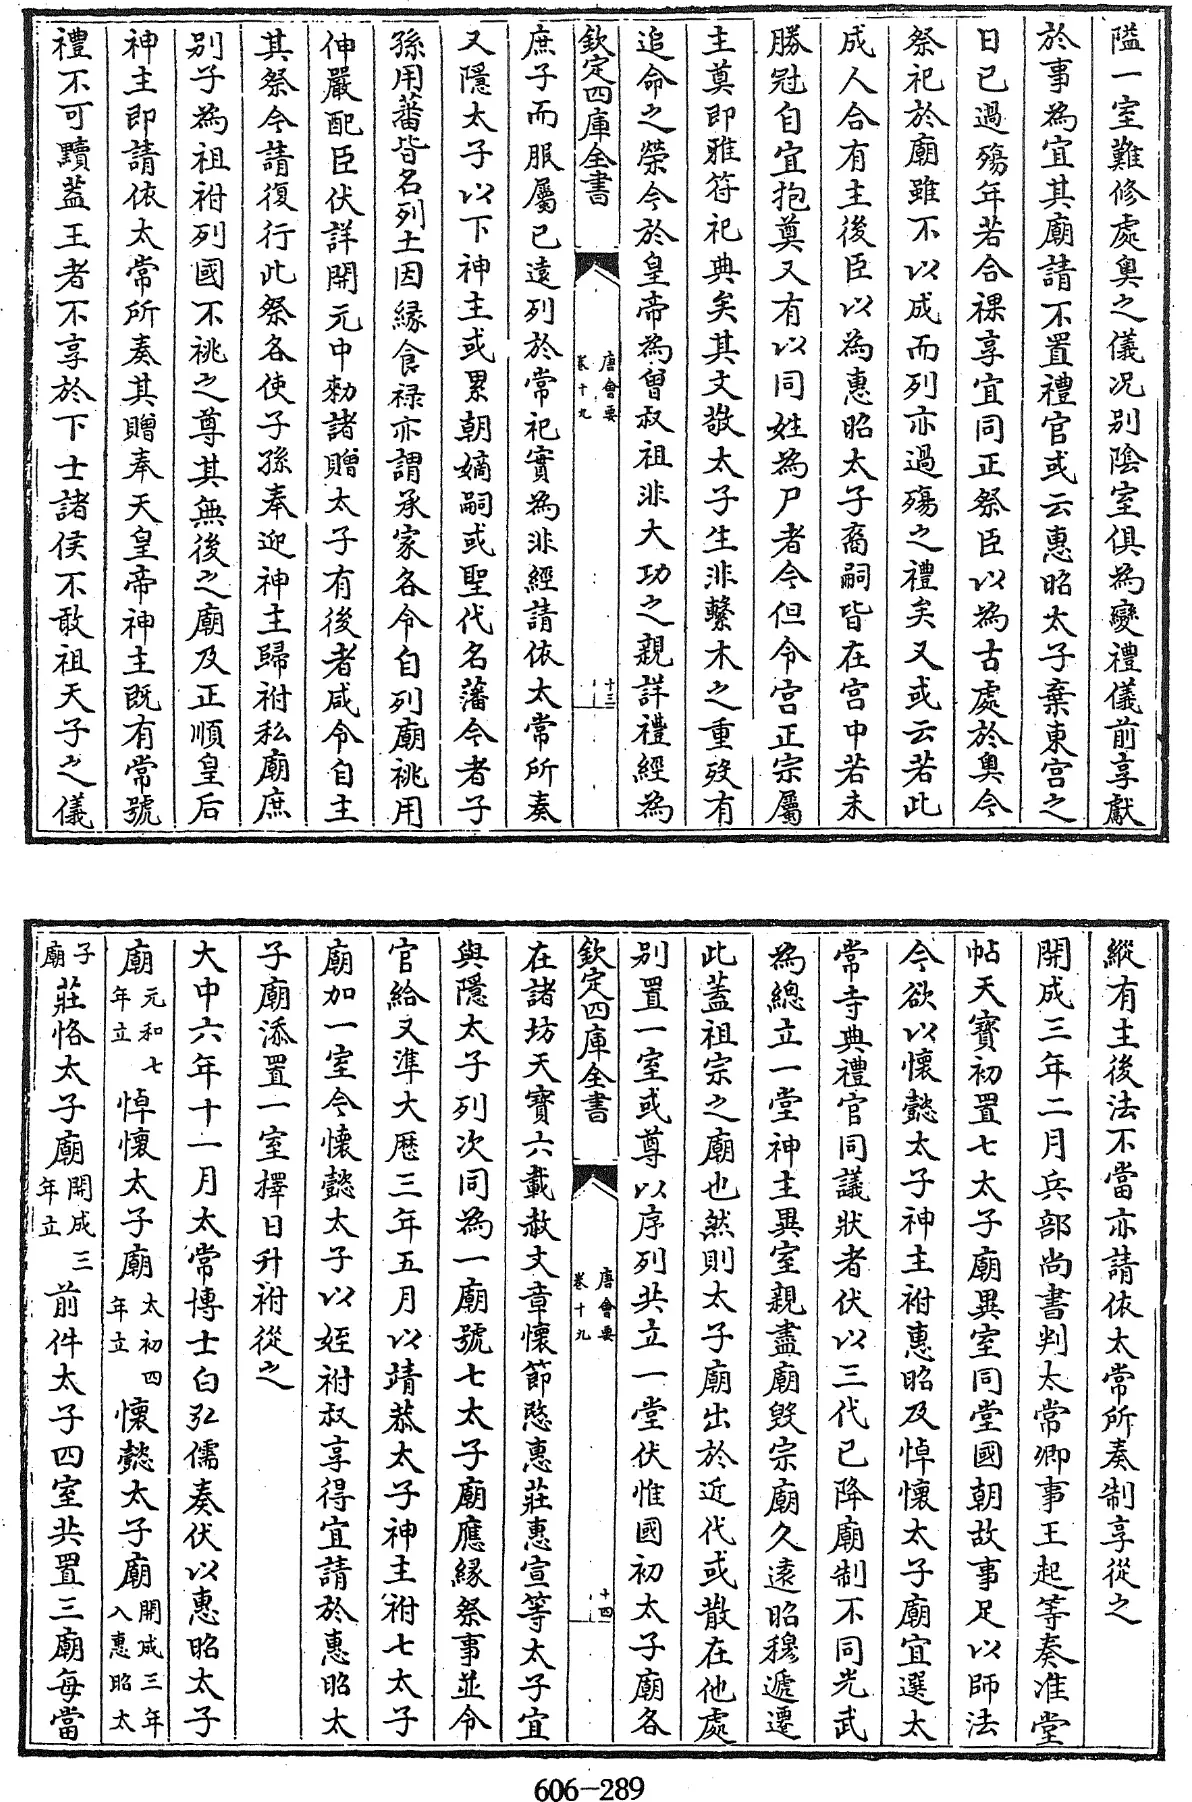 隘一室難修處奧之儀况别隂室俱為變禮儀前享獻
於事為宜其廟請不置禮官或云惠昭太子棄東宫之
日已過殤年若合祼享宜同正祭臣以為古處於奥今
祭祀於廟雖不以成而列亦過殤之禮矣又或云若此
成人合有主後臣以為惠昭太子裔嗣皆在宫中若未
勝冠自宜抱奠又有以同姓為尸者今但令宫正宗屬
主奠即雅符祀典矣其文敬太子生非繫木之重歿有
追命之榮令於皇帝為曾叔祖非大功之親詳禮經為
欽定四庫全書
唐會要
卷十九
十三
庶子而服屬已遠列於常祀實為非經請依太常所奏
又隱太子以下神主或累朝嫡嗣或聖代名藩今者子
孫用蕃皆名列土因緣食禄亦謂承家各令自列廟祧用
伸嚴配臣伏詳開元中勅諸贈太子有後者咸令自主
其祭今請復行此祭各使子孫奉迎神主歸祔私廟庶
别子為祖祔列國不祧之尊其無後之廟及正順皇后
神主即請依太常所奏其贈奉天皇帝神主既有常號
禮不可黷蓋王者不享於下士諸侯不敢祖天子之儀
縱有主後法不當亦請依太常所奏制享從之
開成三年二月兵部尚書判太常卿事王起等奏准堂
帖天寳初置七太子廟異室同堂國朝故事足以師法
今欲以懷懿太子神主祔惠昭及悼懷太子廟宜選太
常寺典禮官同議狀者伏以三代已降廟制不同光武
為總立一堂神主異室親盡廟毁宗廟久遠昭穆遞遷
此蓋祖宗之廟也然則太子廟出於近代或散在他處
别置一室或尊以序列共立一堂伏惟國初太子廟各
欽定四庫全書
唐會要
卷十九
十四
在諸坊天寳六載赦文章懷節愍惠莊惠宣等太子宜
與隱太子列次同為一廟號七太子廟應緣祭事並令
官給又準大厯三年五月以靖恭太子神主祔七太子
廟加一室今懷懿太子以姪祔叔享得宜請於惠昭太
子廟添置一室擇日升祔從之
大中六年十一月太常博士白弘儒奏伏以惠昭太子
廟元和七年立悼懷太子廟太初四年立懷懿太子廟開成三年入惠昭太
子廟莊恪太子廟開成三年立前件太子四室共置三廟每當
606-289